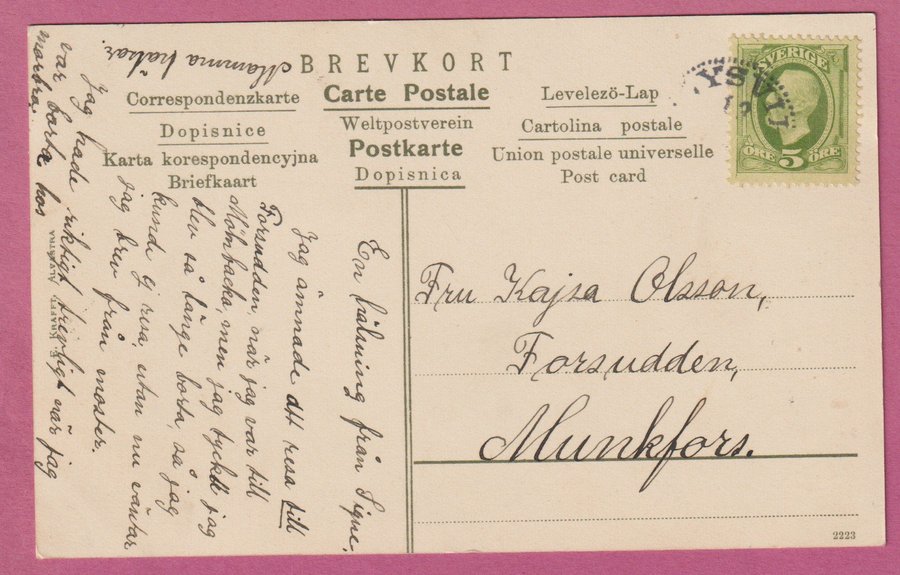 BREVKORT
Correspondenzkarte
Carte Postale
Levelező-Lap
Dopisnice
Weltpostverein
Cartolina postale
Karta korespondencyjna
Postkarte
Union postale universelle
Briefkaart
Dopisnica
Post card
SVERIGE
ÖRE 5 ÖRE
Fru Kajsa Olsson,
Forsudden,
Munkfors.
2223
KRAFFT
En hälsning från Signe.
Jag ämnade att resa till
Forsudden, när jag var till
Mömbacka, men jag tyckte jag
blev så länge borta, så jag
kunde ej resa, utan nu väntar
jag brev från moster.
Jag hade riktigt trevligt när jag
var borta hos
morbror
Mamma hälsar.